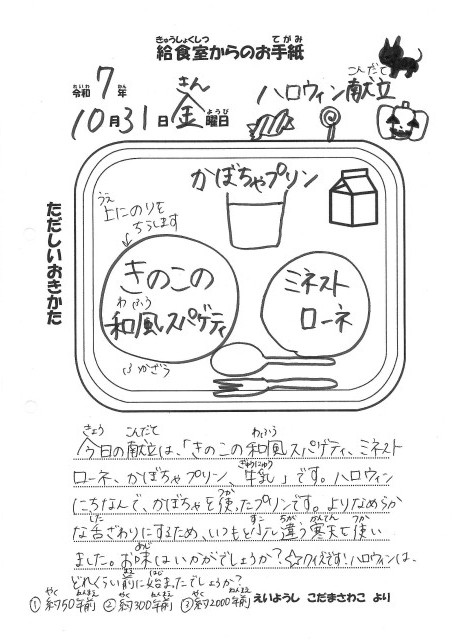 きゅうしょくしつ てがみ
給食室からのお手紙
れいわ ねん
令和7年
さん ようび
10月31日金曜日
こんだて
ハロウィン献立
ただしいおきかた
かぼちゃプリン
うえ
上にのりを
ちらします
きのこの
わふう
和風スパゲティ
ミネスト
ローネ
きょう こんだて わふう
今日の献立は、「きのこの和風スパゲティ、ミネスト
ぎゅうにゅう
ローネ、かぼちゃプリン、牛乳」です。ハロウィン
つか
にちなんで、かぼちゃを使ったプリンです。よりなめらか
した すこ ちが かんてん つか
な舌ざわりにするため、いつもと少し違う寒天を使い
あじ
ました。お味はいかがでしょうか?☆クイズです!ハロウィンは、
まえ はじ
どれくらい前に始まったでしょうか?
やく ねんまえ やく ねんまえ やく ねんまえ
①約50年前 ②約300年前 ③約2000年前 えいようし こだまさわこ より